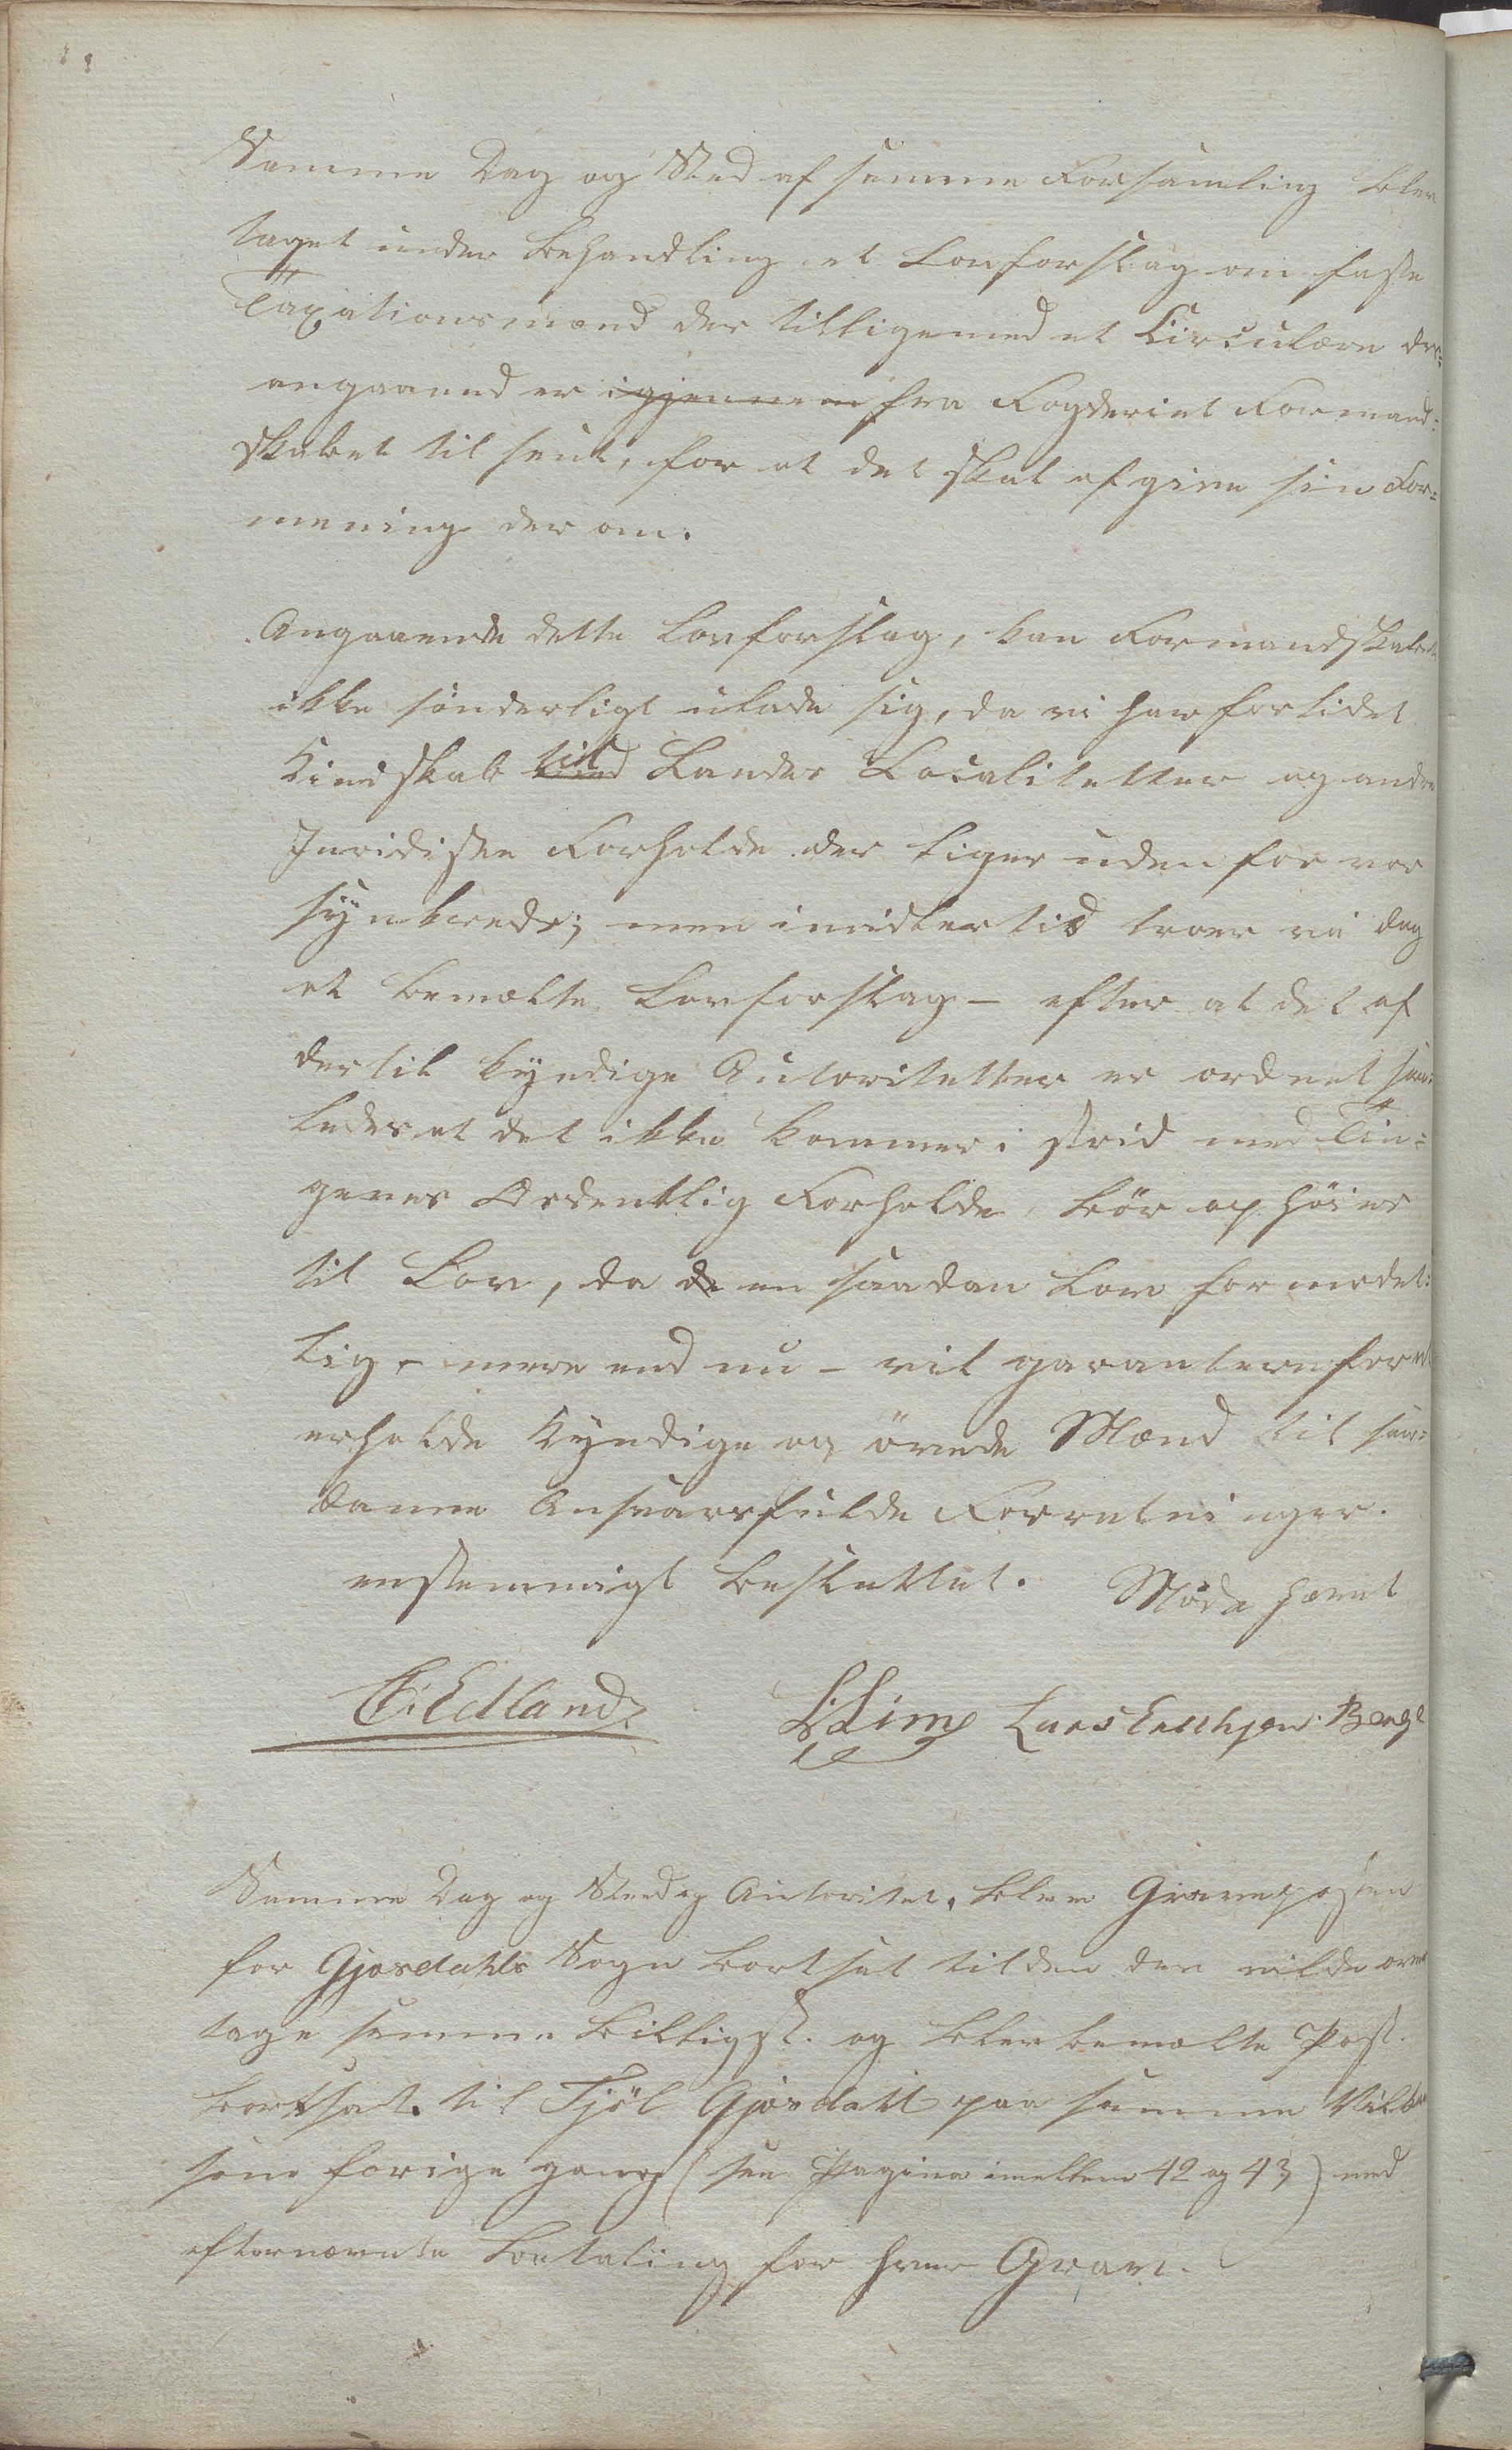 Samme Dag og Sted af samme Forsamling blev
taget under Behandling et Lovforslag om faste
Taxationsmænd der tilligemed et Circulære der=
angaaend er igjennem fra Fogderiet Formand=
skabet til sendt, for at det skal afgive sin For=
mening der om.
Angaaende dette Lovforslag, kan Formandskabet
ikke sønderligt udlade sig, da vi har forlidet
Kiendskab til Landes Localitetter og andre
Juridiske Forholde der liger uden for vor
synkreds; men imidlertid troer vi dog
at bemælte Lovforslag – efter at det af
dertil kyndige Autoritetter er ordnet saa=
ledes at det ikke kommer i strid med Tin=
genes Ordentlig Forholde, bør ophøies
til Lov, da en saadan Lov formodent=
lig – mere end nu – vil garantere for at
erholde Kyndige og øvede Mænd til saa=
danne Ansvarsfulde Forretninger.
enstemmigt besluttet. Møde hævet
E. Edland L Lima Lars Bærge
Samme Dag og Sted og Autoritet, blev Graveposten
for Gjesdahls Sogn bortsat til den der vilde over
tage samme billigst. og blev bemælte Post
bortsat til Tjøl Gjesdahl paa samme Vilkor
som forige gang (see Pagina imellem 42 og 43) med
efternævnte Bedtaling for hver Grav.